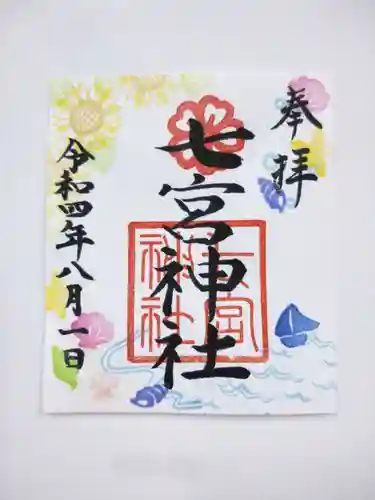 奉拝
七宮神社
七宮神社
令和四年八月一日